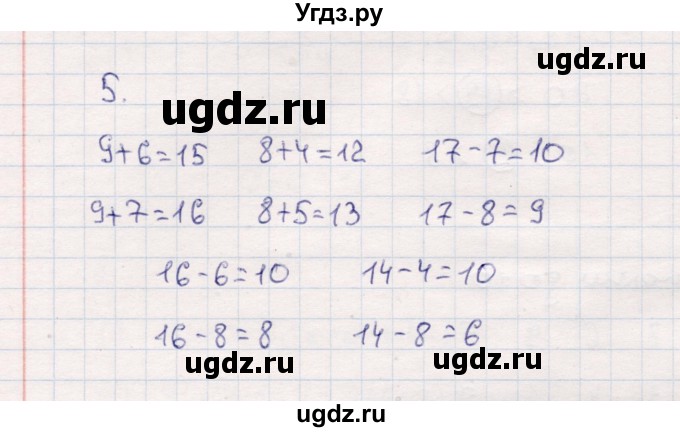 Угдз.ру
ugdz.ru
5.
ugdz.ru
9+6=15 8+4=12 17-7=10
9+7=16 8+5=13 17-8=9
16-6=10 14-4=10
16-8=8 14-8=6
ugdz.ru ugdz.ru
ugdz.ru